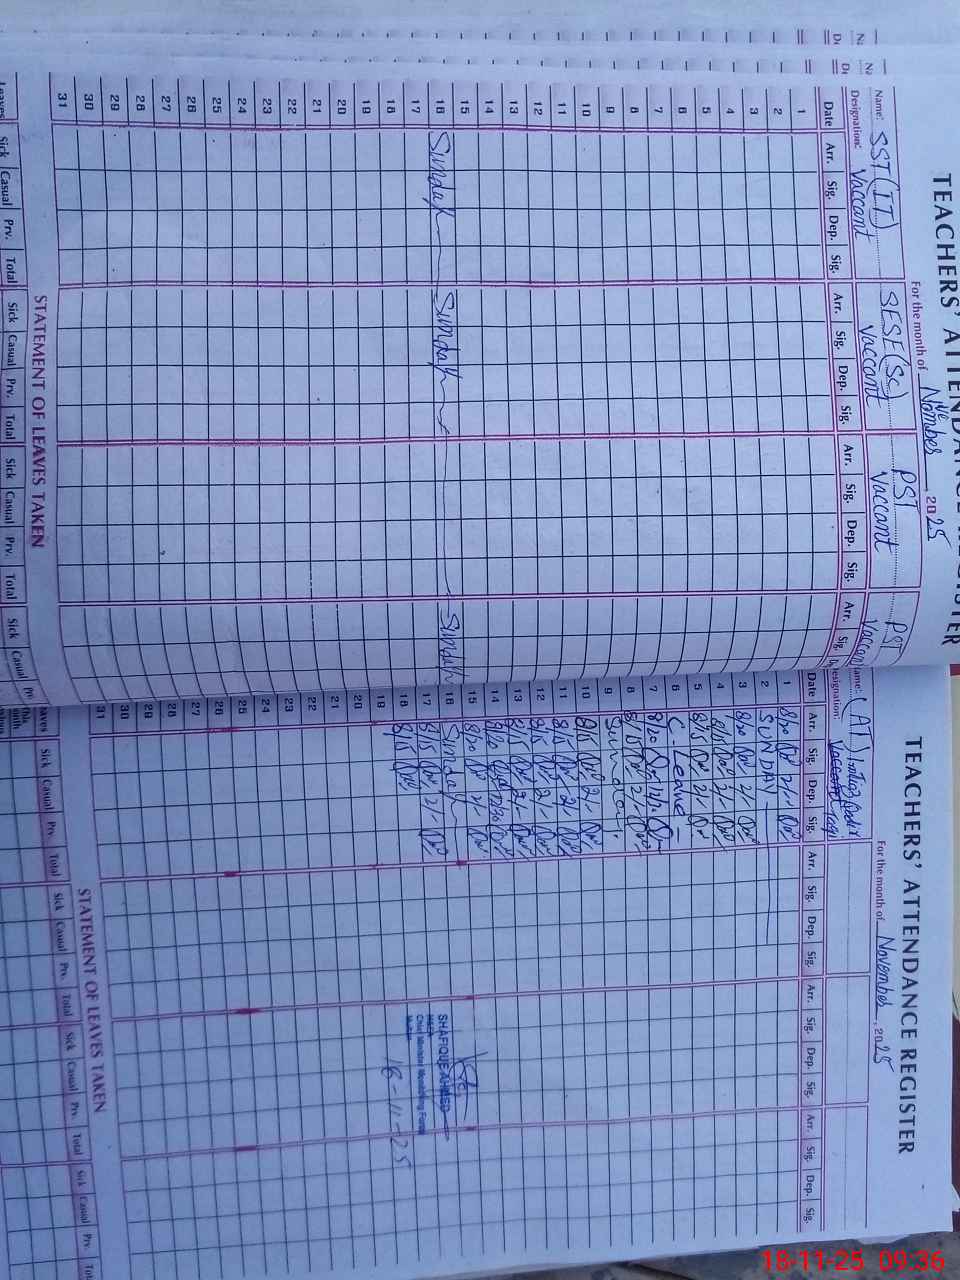 TEACHERS' ATTENDANCE REGISTER
For the month of November, 2025
Name: SST (IT) SESE (Sc) PST PST
Designation: Vaccant Vaccant Vaccant
Date Arr. Sig. Dep. Sig. Arr. Sig. Dep. Sig. Arr. Sig. Dep. Sig. Arr. Sig.
1
2
3
4
5
6
7
8
9
10
11
12
13
14
15
16 Sunday Sunday Sunday
17
18
19
20
21
22
23
24
25
26
27
28
29
30
31
STATEMENT OF LEAVES TAKEN
Leaves Sick Casual Prv. Total Sick Casual Prv. Total Sick Casual Prv. Total Sick Casual
TEACHERS' ATTENDANCE REGISTER
For the month of November, 2025
(AT)
Designation:
Date Arr. Sig. Dep. Sig. Arr. Sig. Dep. Sig. Arr. Sig. Dep. Sig. Arr. Sig. Dep. Sig.
1 8/20 2/-
2 SUNDAY
3 8/20 2/-
4 8/15 2/-
5 8/15 2/-
6 C-Leave
7 8/20
8 8/15 2/-
9 Sunday
10 8/15 2/-
11 8/15 2/-
12 8/15 2/-
13 8/15 2/-
14 8/20
15 8/20 2/-
16 Sunday
17 8/15 2/-
18 8/15
19
20
21
22
23
24
25
26
27
28
29
30
31
SHAFIQUE AHMED
Chief Minister Monitoring Force
Multan
18-11-25
STATEMENT OF LEAVES TAKEN
Sick Casual Prv. Total Sick Casual Prv. Total Sick Casual Prv. Total Sick Casual Prv.
18-11-25 09:36